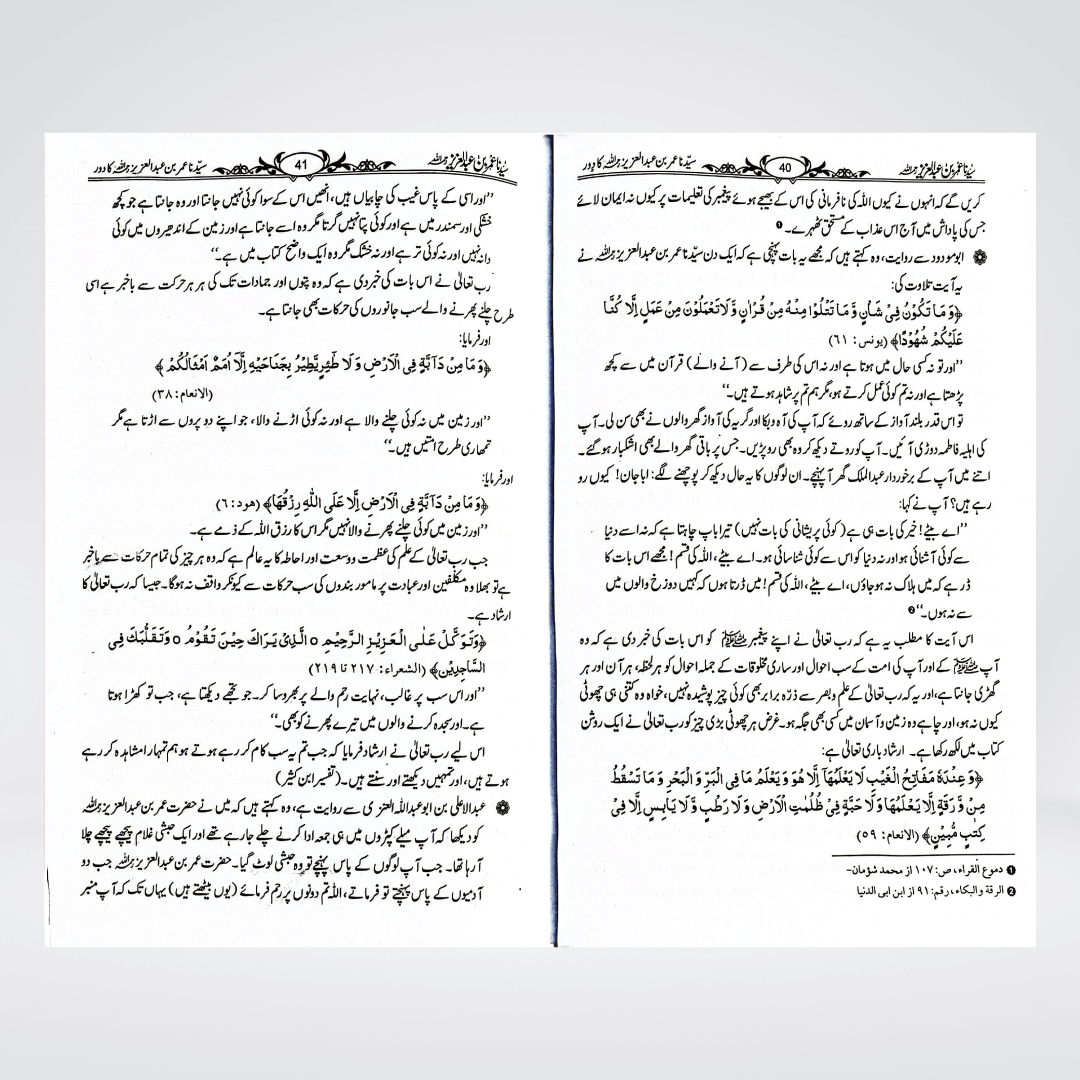 سیّدنا عمر بن عبدالعزیز رحمہ اللہ 40 سیّدنا عمر بن عبدالعزیز رحمہ اللہ کا دور
کریں گے کہ انہوں نے کیوں اللہ کی نافرمانی کی اس کے بھیجے ہوئے پیغمبر کی تعلیمات پر کیوں نہ ایمان لائے
جس کی پاداش میں آج اس عذاب کے مستحق ٹھہرے۔ ❶
ابو مودود سے روایت، وہ کہتے ہیں کہ مجھے یہ بات پہنچی ہے کہ ایک دن سیّدنا عمر بن عبدالعزیز رحمہ اللہ نے
یہ آیت تلاوت کی:
﴿وَمَا تَكُوْنُ فِیْ شَاْنٍ وَّمَا تَتْلُوْا مِنْهُ مِنْ قُرْاٰنٍ وَّلَا تَعْمَلُوْنَ مِنْ عَمَلٍ اِلَّا كُنَّا
عَلَیْكُمْ شُهُوْدًا﴾ (یونس: ٦١)
’’اور تو نہ کسی حال میں ہوتا ہے اور نہ اس کی طرف سے (آنے والے) قرآن میں سے کچھ
پڑھتا ہے اور نہ تم کوئی عمل کرتے ہو، مگر ہم تم پر شاہد ہوتے ہیں۔‘‘
تو اس قدر بلند آواز کے ساتھ روئے کہ آپ کی آہ و بکا اور گریہ کی آواز گھر والوں نے بھی سن لی۔ آپ
کی اہلیہ فاطمہ دوڑی آئیں۔ آپ کو روتے دیکھ کر وہ بھی رو پڑیں۔ جس پر باقی گھر والے بھی اشکبار ہو گئے۔
اتنے میں آپ کے برخوردار عبدالملک گھر آپہنچے۔ ان لوگوں کا یہ حال دیکھ کر پوچھنے لگے: ابا جان! کیوں رو
رہے ہیں؟ آپ نے کہا:
’’اے بیٹے! خیر کی بات ہی ہے (کوئی پریشانی کی بات نہیں) تیرا باپ چاہتا ہے کہ نہ اسے دنیا
سے کوئی آشنائی ہو اور نہ دنیا کو اس سے کوئی شناسائی ہو۔ اے بیٹے، اللہ کی قسم! مجھے اس بات کا
ڈر ہے کہ میں ہلاک نہ ہو جاؤں، اے بیٹے، اللہ کی قسم! میں ڈرتا ہوں کہ کہیں دوزخ والوں میں
سے نہ ہوں۔‘‘ ❷
اس آیت کا مطلب یہ ہے کہ رب تعالیٰ نے اپنے پیغمبر ﷺ کو اس بات کی خبر دی ہے کہ وہ
آپ ﷺ کے اور آپ کی امت کے سب احوال اور ساری مخلوقات کے جملہ احوال کو ہر لحظہ، ہر آن اور ہر
گھڑی جانتا ہے، اور یہ کہ رب تعالیٰ کے علم و بصر سے ذرّہ برابر بھی کوئی چیز پوشیدہ نہیں، خواہ وہ کتنی ہی چھوٹی
کیوں نہ ہو، اور چاہے وہ زمین و آسمان میں کسی بھی جگہ ہو۔ غرض ہر چھوٹی بڑی چیز کو رب تعالیٰ نے ایک روشن
کتاب میں لکھ رکھا ہے۔ ارشاد باری تعالیٰ ہے:
﴿وَعِنْدَهٗ مَفَاتِحُ الْغَیْبِ لَا یَعْلَمُهَآ اِلَّا هُوَ وَیَعْلَمُ مَا فِی الْبَرِّ وَالْبَحْرِ وَمَا تَسْقُطُ
مِنْ وَّرَقَةٍ اِلَّا یَعْلَمُهَا وَلَا حَبَّةٍ فِیْ ظُلُمٰتِ الْاَرْضِ وَلَا رَطْبٍ وَّلَا یَابِسٍ اِلَّا فِیْ
كِتٰبٍ مُّبِیْنٍ﴾ (الانعام: ٥٩)
❶ دموع القراء، ص: ١٠٧ از محمد شؤمان۔
❷ الرقة والبکاء، رقم: ٩١ از ابن ابی الدنیا
سیّدنا عمر بن عبدالعزیز رحمہ اللہ 41 سیّدنا عمر بن عبدالعزیز رحمہ اللہ کا دور
’’اور اسی کے پاس غیب کی چابیاں ہیں، انھیں اس کے سوا کوئی نہیں جانتا اور وہ جانتا ہے جو کچھ
خشکی اور سمندر میں ہے اور کوئی پتا نہیں گرتا مگر وہ اسے جانتا ہے اور زمین کے اندھیروں میں کوئی
دانہ نہیں اور نہ کوئی تر ہے اور نہ خشک مگر وہ ایک واضح کتاب میں ہے۔‘‘
رب تعالیٰ نے اس بات کی خبر دی ہے کہ وہ پتوں اور جمادات تک کی ہر ہر حرکت سے باخبر ہے اسی
طرح چلنے پھرنے والے سب جانوروں کی حرکات بھی جانتا ہے۔
اور فرمایا:
﴿وَمَا مِنْ دَآبَّةٍ فِی الْاَرْضِ وَلَا طٰٓئِرٍ یَّطِیْرُ بِجَنَاحَیْهِ اِلَّآ اُمَمٌ اَمْثَالُكُمْ﴾
(الانعام: ٣٨)
’’اور زمین میں نہ کوئی چلنے والا ہے اور نہ کوئی اڑنے والا، جو اپنے دو پروں سے اڑتا ہے مگر
تمھاری طرح امتیں ہیں۔‘‘
اور فرمایا:
﴿وَمَا مِنْ دَآبَّةٍ فِی الْاَرْضِ اِلَّا عَلَی اللّٰهِ رِزْقُهَا﴾ (هود: ٦)
’’اور زمین میں کوئی چلنے پھرنے والا نہیں مگر اس کا رزق اللہ کے ذمے ہے۔
جب رب تعالیٰ کے علم کی عظمت و وسعت اور احاطہ کا یہ عالم ہے کہ وہ ہر چیز کی تمام حرکات سے باخبر
ہے تو بھلا وہ مکلّفین اور عبادت پر مامور بندوں کی سب حرکات سے کیونکر واقف نہ ہوگا۔ جیسا کہ رب تعالیٰ کا
ارشاد ہے۔
﴿وَتَوَكَّلْ عَلَی الْعَزِیْزِ الرَّحِیْمِ ٥ الَّذِیْ یَرَاكَ حِیْنَ تَقُوْمُ ٥ وَتَقَلُّبَكَ فِی
السَّاجِدِیْنَ﴾ (الشعراء: ٢١٧ تا ٢١٩)
’’اور اس سب پر غالب، نہایت رحم والے پر بھروسا کر۔ جو تجھے دیکھتا ہے، جب تو کھڑا ہوتا
ہے۔ اور سجدہ کرنے والوں میں تیرے پھرنے کو بھی۔‘‘
اس لیے رب تعالیٰ نے ارشاد فرمایا کہ جب تم یہ سب کام کر رہے ہوتے ہو ہم تمہارا مشاہدہ کر رہے
ہوتے ہیں، اور تمہیں دیکھتے اور سنتے ہیں۔ (تفسیر ابن کثیر)
عبدالاعلیٰ بن ابو عبداللہ العنزی سے روایت ہے، وہ کہتے ہیں کہ میں نے حضرت عمر بن عبدالعزیز رحمہ اللہ
کو دیکھا کہ آپ میلے کپڑوں میں ہی جمعہ ادا کرنے چلے جا رہے تھے اور ایک حبشی غلام پیچھے پیچھے چلا
آ رہا تھا۔ جب آپ لوگوں کے پاس پہنچے تو وہ حبشی لوٹ گیا۔ حضرت عمر بن عبدالعزیز رحمہ اللہ جب دو
آدمیوں کے پاس پہنچتے تو فرماتے، اللہ تم دونوں پر رحم فرمائے (یوں بیٹھتے ہیں) یہاں تک کہ آپ منبر